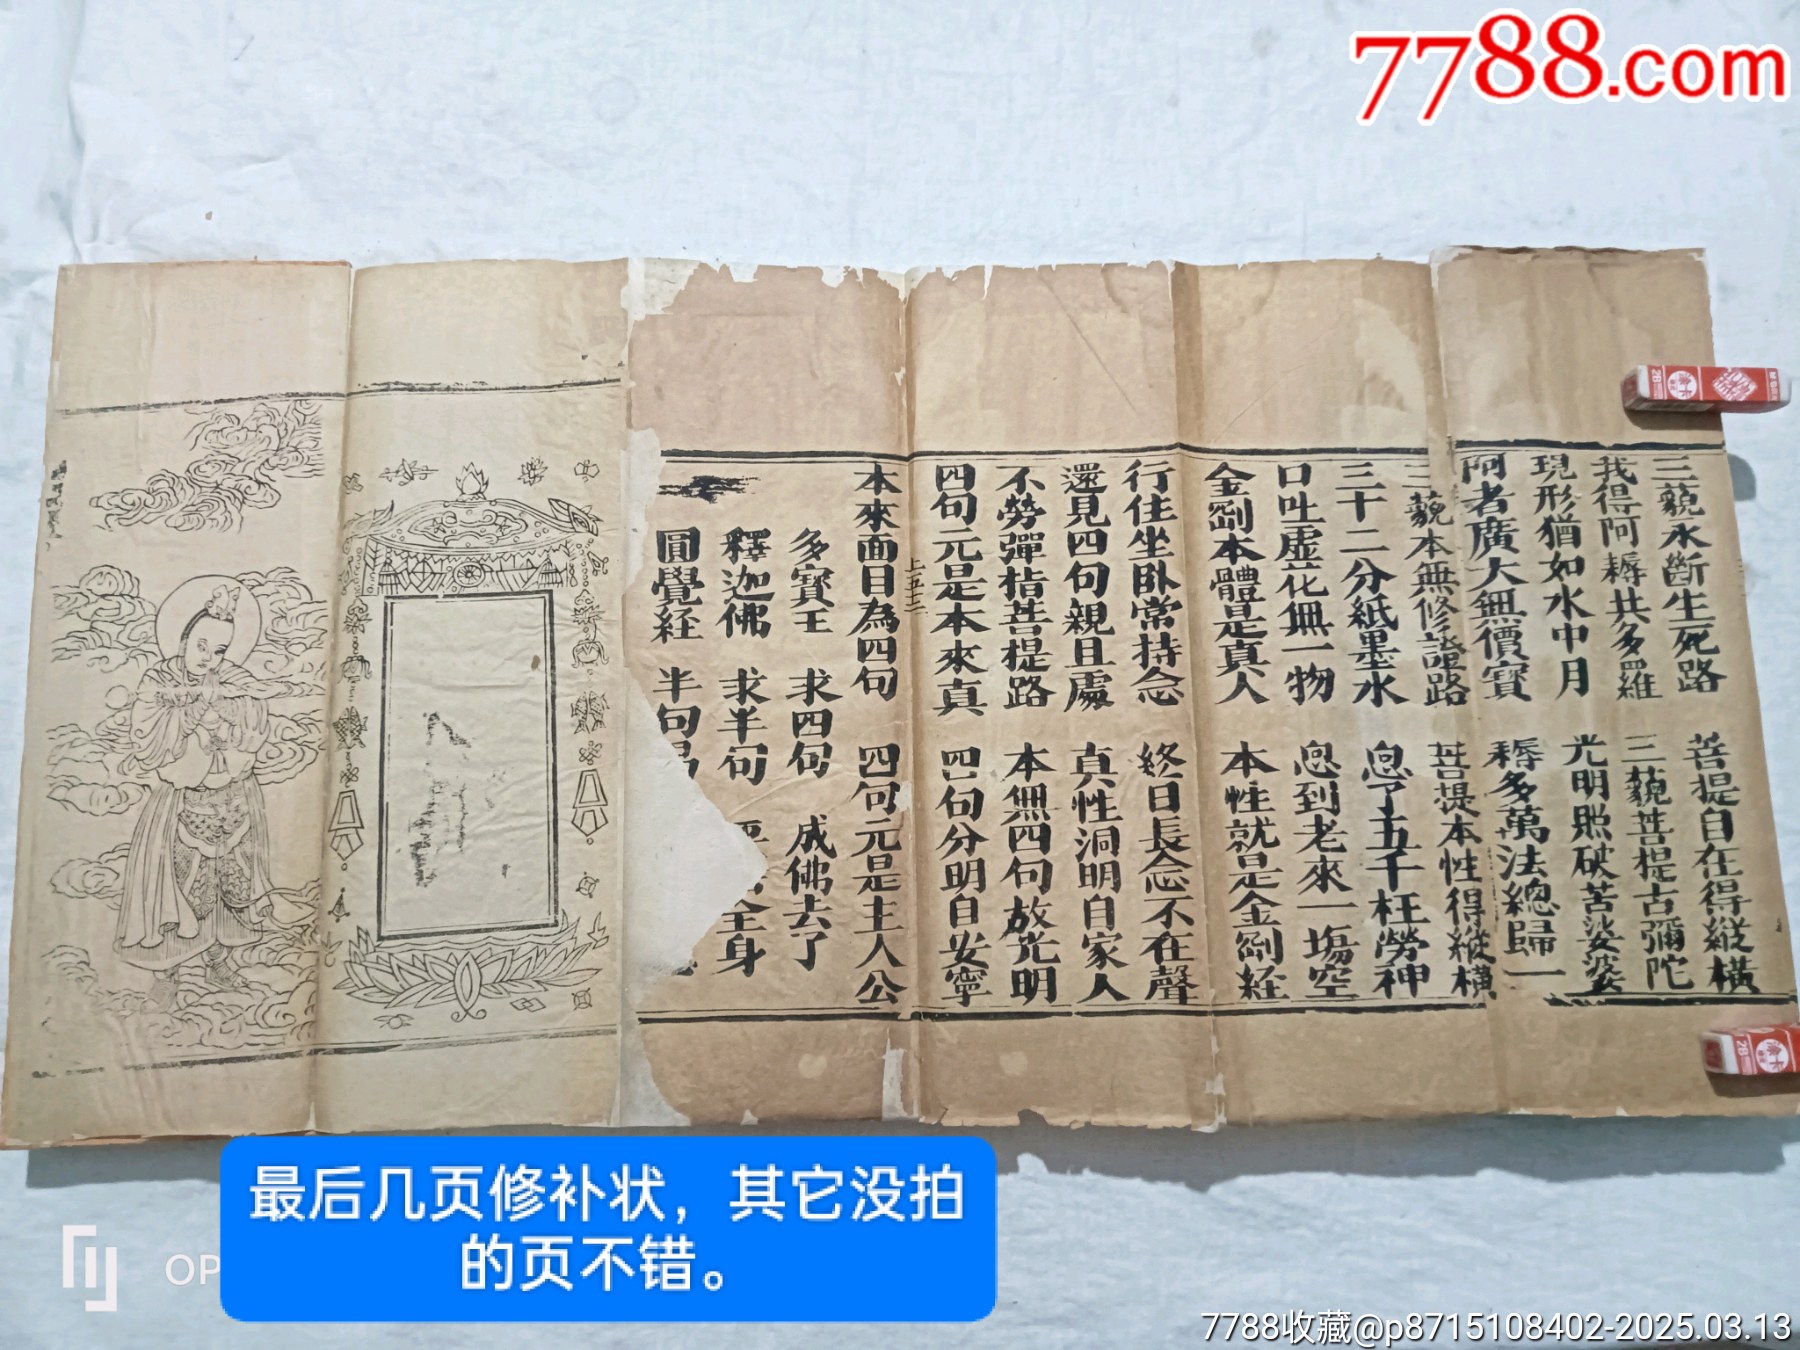 7788.com
三藐永斷生死路 菩提自在得縱橫
我得阿耨共多羅 三藐菩提古彌陀
現形猶如水中月 光明照破苦娑婆
阿者廣大無價寳 耨多萬法總歸一
三藐本無修證路 菩提本性得縱橫
三十二分紙墨水 念了五千枉勞神
口吐虛花無一物 念到老來一場空
金剛本體是真人 本性就是金剛経
行住坐卧常持念 終日長念不在聲
還見四句親且處 真性洞明自家人
不勞彈指菩提路 本無四句放光明
四句元是本來真 四句分明自安寧
上五十三
本來面目為四句 四句元是主人公
多寳王 求四句 成佛去了
釋迦佛 求半句 全身
圓覺経 半句
最后几页修补状，其它没拍
的页不错。
OP
2B
2B
7788收藏@p8715108402-2025.03.13